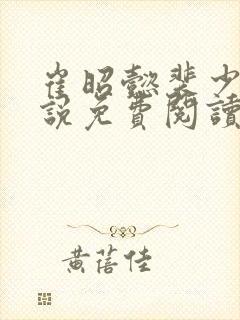 崔昭懿裴少
說免費閱讀
黃蓓佳